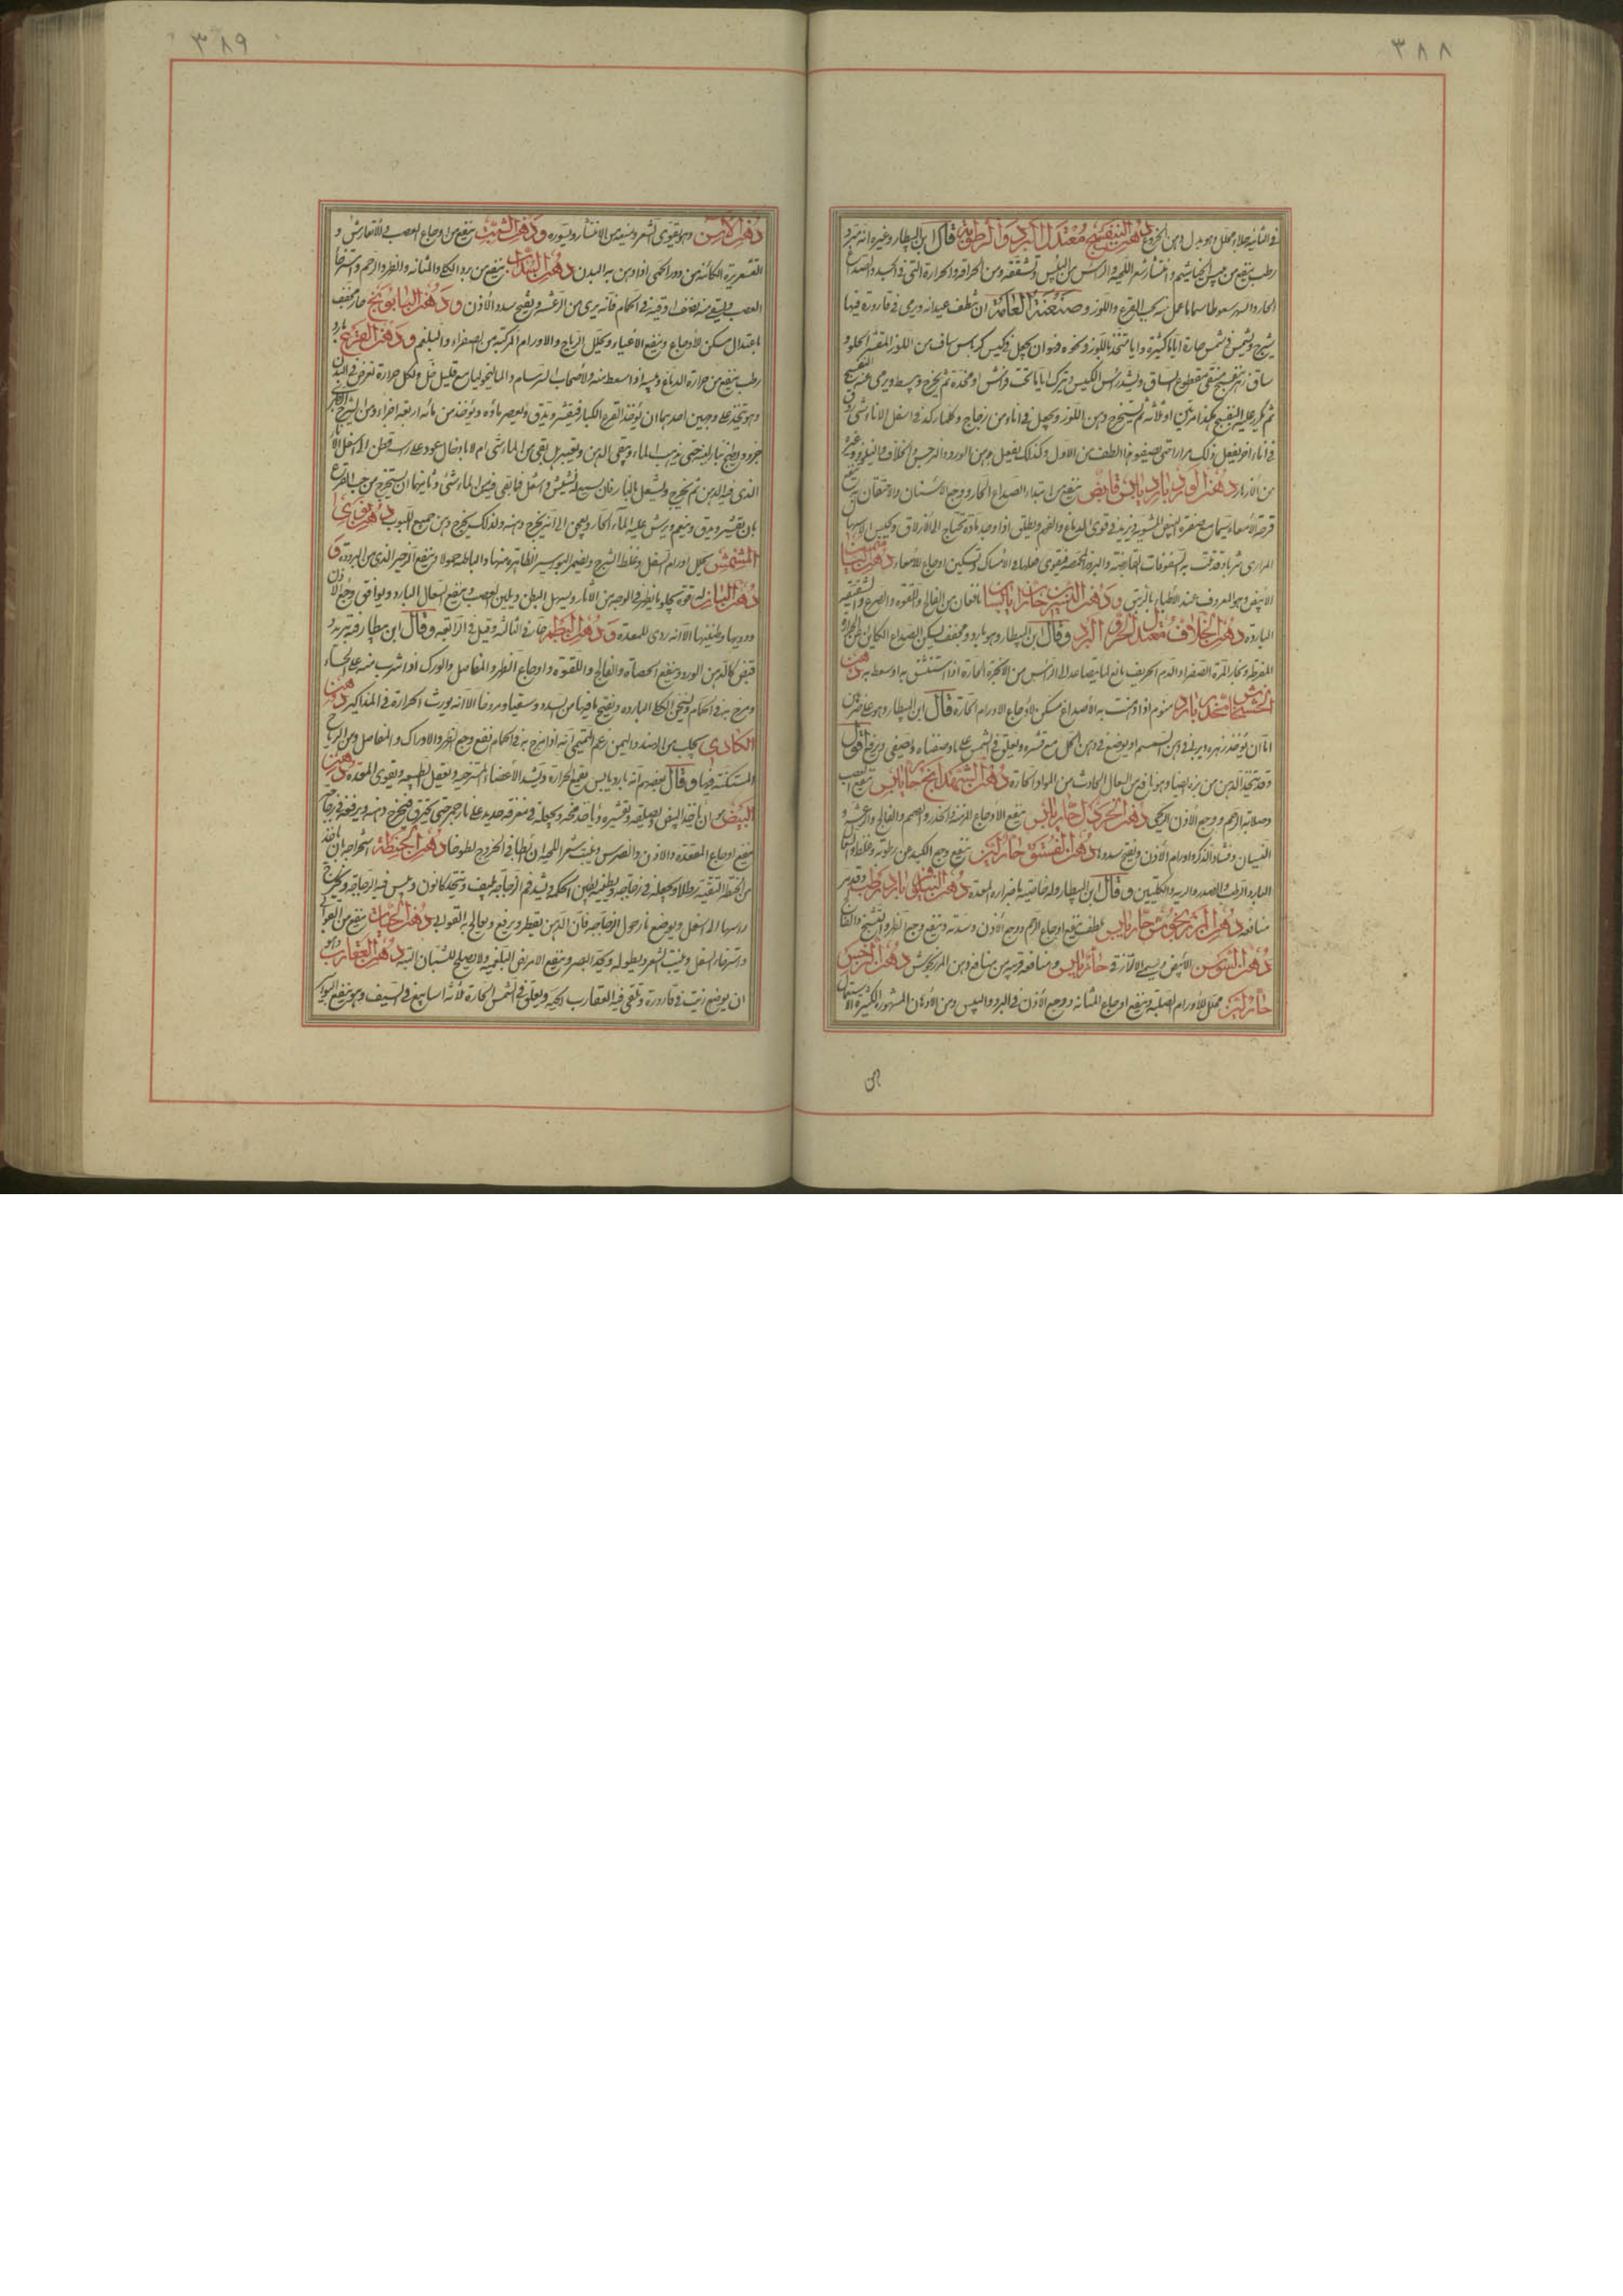 ٣٨٨
فى الثانية جلاء محلل وهو بدل دهن الخروع دهن البنفسج معتدل البرد والرطوبة قال ابن البيطار وغيره انه مبرد
رطب ينفع من الخياشيم وانتشار شعر اللحية والرأس من اليبس وتشققه ومن الحراقة والحرارة التى فى الجسد والصداع
الحار والسهر سعوطا سيما ما عمل بحب القرع واللوز وصنعته العامة ان يقطف عيدانه ويرمى فى قارورة فيها
شيرج ويشمس فى شمس حارة اياما كثيرة واما متخذ باللوز ونحوه فهو ان يجعل فى كيس كرباس ساف من اللوز المقشر الحلو و
ساق زهر بنفسج منقى مقطوع الساق ويشد رأس الكيس ويترك اياما تحت فراش او مخدة ثم يخرج ويبسط ويرمى عنه البنفسج
ثم يكرر عليه البنفسج هكذا مرتين او ثلاثة ثم يستخرج دهن اللوز ويجعل فى اناء من زجاج وكلما ركد فى اسفل الاناء شئ
فى اناء اخر يفعل ذلك مرارا حتى يصفو هذا الطف من الاول وكذلك يفعل دهن الورد والنرجس والخلاف والنيلوفر وغيره
من الازهار دهن الورد بارد يابس قابض ينفع من ابتداء الصداع الحار ووجع الاسنان والاحتقان به ينفع
قرحة الأمعاء سيما مع صفرة البيض المشوية ويزيد فى قوى الدماغ والفهم ويطلق اذا وجد مادة تحتاج الى الازلاق ويحبس الاسهال
المرارى شربا وقد تلت به السفوفات القابضة والبزور المحمصة فيقوى فعلها فى الامساك وتسكين اوجاع الامعاء دهن الياسمين
الابيض وهو المعروف عند الاطباء بالزنبق ودهن النسرين حاران يابسان نافعان من الفالج واللقوة والصرع والشقيقة
الباردة دهن الخلاف معتدل الحر والبرد وقال ابن البيطار وهو بارد ومجفف يسكن الصداع الكائن من الحرارة
المفرطة وبخار المرة الصفراء والدم الحريف مانع لما يتصاعد الى الرأس من الابخرة الحارة اذا استنشق به او سعط به دهن
الخشخاش مخدر بارد منوم اذا دهنت به الاصداغ مسكن لاوجاع الاورام الحارة قال ابن البيطار وهو على ضربين
اما ان يؤخذ زهره ويربا فى دهن السمسم او يوضع فى دهن الخل مع قشره ويعلق فى الشمس على ما وصفناه ويصفى ويرفع اقول
وقد يتخذ الدهن من بزره ايضا وهو نافع من السعال الحادث من المواد الحارة دهن الشهدانج حار يابس ينفع العصب
وصلابة الرحم ووجع الأذن الريحى دهن الخردل حار يابس ينفع الأوجاع المزمنة والخدر والصمم والفالج والرعشة و
النسيان وفساد الذكر واورام الأذن ويفتح سددها دهن الفستق حار لين ينفع وجع الكبد عن رطوبة وغلظ والسعال
البارد الرطب والصدر والرية والكليتين وقال ابن البيطار وله خاصية باضراره المعدة دهن النيلوفر بارد رطب وقد مر
منافعه دهن المرزنجوش حار يابس ملطف ينفع اوجاع الرحم ووجع الأذن وسدته وينفع وجع الظهر والتشنج والفالج
دهن السوسن الأبيض ويسمى الرازقى حار يابس ومنافعه قريبة من منافع دهن المرزنجوش دهن النرجس
حار لين محلل للأورام الصلبة وينفع اوجاع المثانة ووجع الأذن فى البرد واليبس ومن الأدهان المشهورة الكثيرة الاستعمال
٣٨٩
دهن الآس وهو يقوى الشعر ويمنعه من الانتثار ويسوده ودهن الشبت ينفع من اوجاع العصب والارتعاش و
القشعريرة الكائنة من دور الحمى اذا دهن به البدن دهن السذاب ينفع من برد الكلا والمثانة والظهر والرحم واسترخاء
العصب واذا سقى منه نصف اوقية فى الحمام فانه يبرئ من الرعشة ويفتح سدد الأذن ودهن البابونج حار مجفف
باعتدال مسكن للأوجاع وينفع الأعياء ويحلل الرياح والاورام المركبة من الصفراء والبلغم ودهن القرع بارد
رطب ينفع من حرارة الدماغ ويبسه اذا اسعط منه ولأصحاب البرسام والماليخوليا مع قليل خل ولكل حرارة تعرض فى البدن
وهو يتخذ على وجهين احدهما ان يؤخذ القرع الكبار فيقشر ويدق ويعصر ماؤه ويؤخذ من مائه اربعة اجزاء ومن الشيرج الطرى
جزو ويطبخ بنار لينة حتى يذهب الماء ويبقى الدهن ويعتبر هل بقى من الماء شئ ام لا بادخال عود على رأسه قطن الى اسفل الاناء
الذى فيه الدهن ثم يخرج ويشعل بالنار فان سمع له نشيش واشتعل فما بقى فيه من الماء شئ وثانيهما ان يستخرج من حب القرع
بان يقشر ويدق وينعم ويرش عليه الماء الحار ويعجن الى ان يخرج دهنه وكذلك يخرج دهن جميع الحبوب دهن نوى
المشمش يحلل اورام السفل وغلظ الشرج وينفع البواسير الظاهرة منها والباطنة حمولا وينفع الزحير الذى من البرودة و
دهن البان له قوة يجلو ما يظهر فى الوجه من الآثار ويسهل البطن ويلين العصب وينفع السعال البارد ويوافق وجع الأذن
ودويها وطنينها الا انه ردى للمعدة ودهن البطم حار فى الثالثة وقيل فى الرابعة وقال ابن بيطار فيه تبريد و
قبض كالدهن الورد وينفع الحصاة والفالج واللقوة واوجاع الظهر والمفاصل والورك اذا شرب منه على الحساء
ومرخ به فى الحمام ويسخن الكلا الباردة ويفتح ما فيها من السدد وسقيا ومروخا الا انه يورث الحرارة فى المذاكير دهن
الكادى يجلب من الهند واليمن زعم التميمى انه اذا مرخ به فى الحمام نفع وجع الظهر والاوراك والمفاصل ومن الرياح
المستكنة فيها وقال بعضهم انه بارد يابس يقمع الحرارة ويشد الأعضاء المسترخية ويعقل الطبيعة ويقوى المعدة دهن
البيض هو ان تأخذ البيض وتصلقه وتقشره وتأخذ مخه ويجعله فى مغرفة حديد على نار جمر حتى يحترق فيخرج دهنه ويرفعه فى زجاجة
ينفع اوجاع المقعدة والاذن والضرس وينبت شعر اللحية ان ابطأ فى الخروج لطوخا دهن الحنطة استخراجه بان يأخذ
من الحنطة النقية رطلا ويجعله فى زجاجة ويطينه بطين الحكمة ويشد فم الزجاجة بليف ويتخذ كانون ويلبس فيه الزجاجة ويخرج
رأسها الى اسفل ويوضع نار حول الزجاجة فان الدهن يقطر ويرفع ويعالج به القوابى دهن الحيات ينفع من القوابى
واسترخاء السفل وينبت الشعر ويطوله ويحد البصر وينفع الامراض البلغمية ولا يصلح للشبان البتة دهن العقارب وهو
ان يوضع زيت فى قارورة ويلقى فيه العقارب الحية ويعلق فى الشمس الحارة ثلاثة اسابيع فى الصيف وهو ينفع البواسير